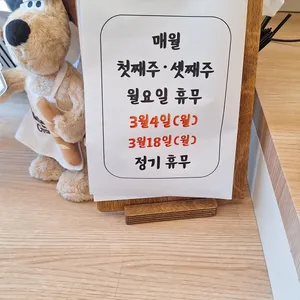 매월
첫째주·셋째주
월요일 휴무
3월4일(월)
3월18일(월)
정기 휴무